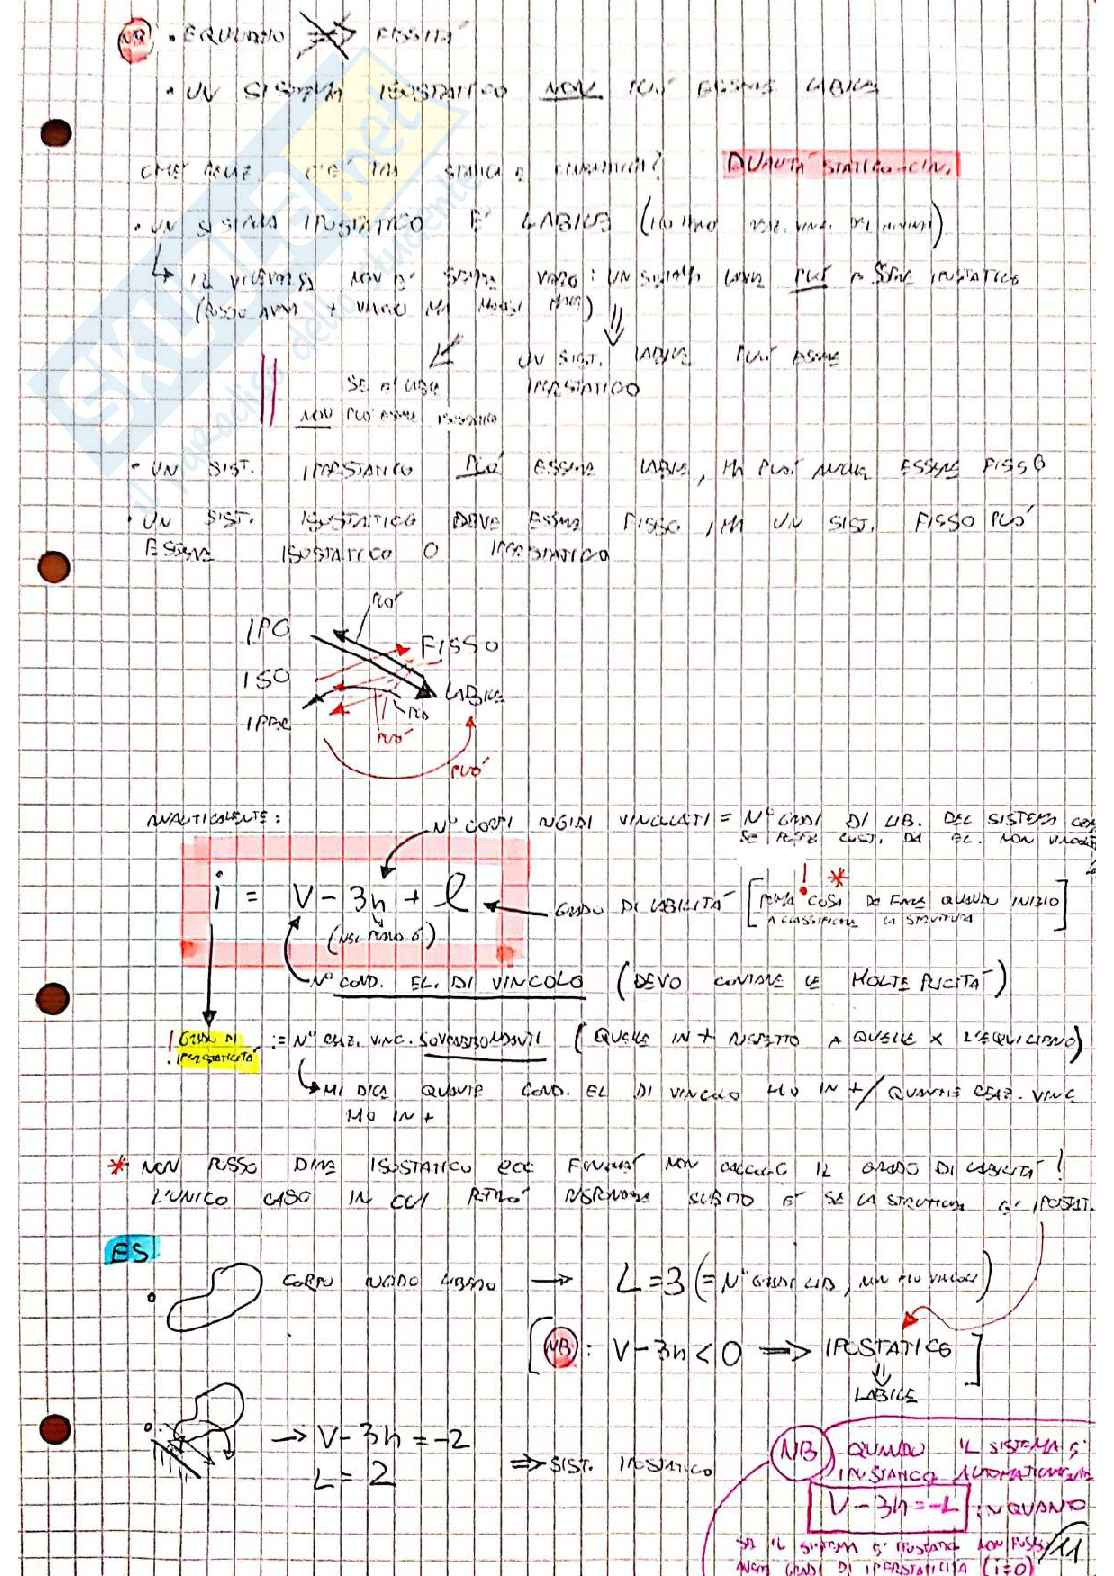 NB • EQUILIBRIO FISSITÀ
• UN SISTEMA ISOSTATICO NON PUÒ ESSERE LABILE
CHE RELAZ. C'È TRA STATICA E CINEMATICA? DUALITÀ STATICO-CIN.
• UN SISTEMA IPOSTATICO È LABILE
↳ IL VICEVERSA NON È SEMPRE VERO: UN SISTEMA LABILE PUÒ ESSERE IPOSTATICO
UN SIST. LABILE PUÒ ESSERE
SE È LABILE IPERSTATICO
NON PUÒ ESSERE ISOSTATICO
• UN SIST. IPERSTATICO PUÒ ESSERE LABILE, MA PUÒ ANCHE ESSERE FISSO
• UN SIST. ISOSTATICO DEVE ESSERE FISSO, MA UN SIST. FISSO PUÒ
ESSERE ISOSTATICO O IPERSTATICO
PUÒ
IPO FISSO
ISO LABILE
IPER PUÒ
PUÒ
PUÒ
ANALITICAMENTE:
N° CORPI RIGIDI VINCOLATI = N° GRADI DI LIB. DEL SISTEMA
i = V - 3n + l
GRADO DI LABILITÀ [PRIMA COSA DA FARE QUANDO INIZIO
A CLASSIFICARE LA STRUTTURA]
N° COND. EL. DI VINCOLO (DEVO CONTARE LE MOLTEPLICITÀ)
! GRADO DI IPERSTATICITÀ := N° REAZ. VINC. SOVRABBONDANTI (QUELLE IN + RISPETTO A QUELLE X L'EQUILIBRIO)
↳ MI DICE QUANTE COND. EL DI VINCOLO HO IN + / QUANTE REAZ. VINC
HO IN +
* NON POSSO DIRE ISOSTATICO ECC FINCHÉ NON CALCOLO IL GRADO DI LABILITÀ!
L'UNICO CASO IN CUI POTRÒ RISPONDERE SUBITO È SE LA STRUTTURA È IPOSTAT.
ES
• CORPO RIGIDO LIBERO → L = 3 (= N° GRADI LIB, NON HO VINCOLI)
[NB: V - 3n < 0 ⇒ IPOSTATICO]
⇓
LABILE
→ V - 3n = -2
L = 2
⇒ SIST. IPOSTATICO
NB QUANDO IL SISTEMA È
IPOSTATICO AUTOMATICAMENTE
V - 3n = -L IN QUANTO
SE IL SISTEMA È IPOSTATICO NON POSSO
AVERE GRADI DI IPERSTATICITÀ (i=0)
11